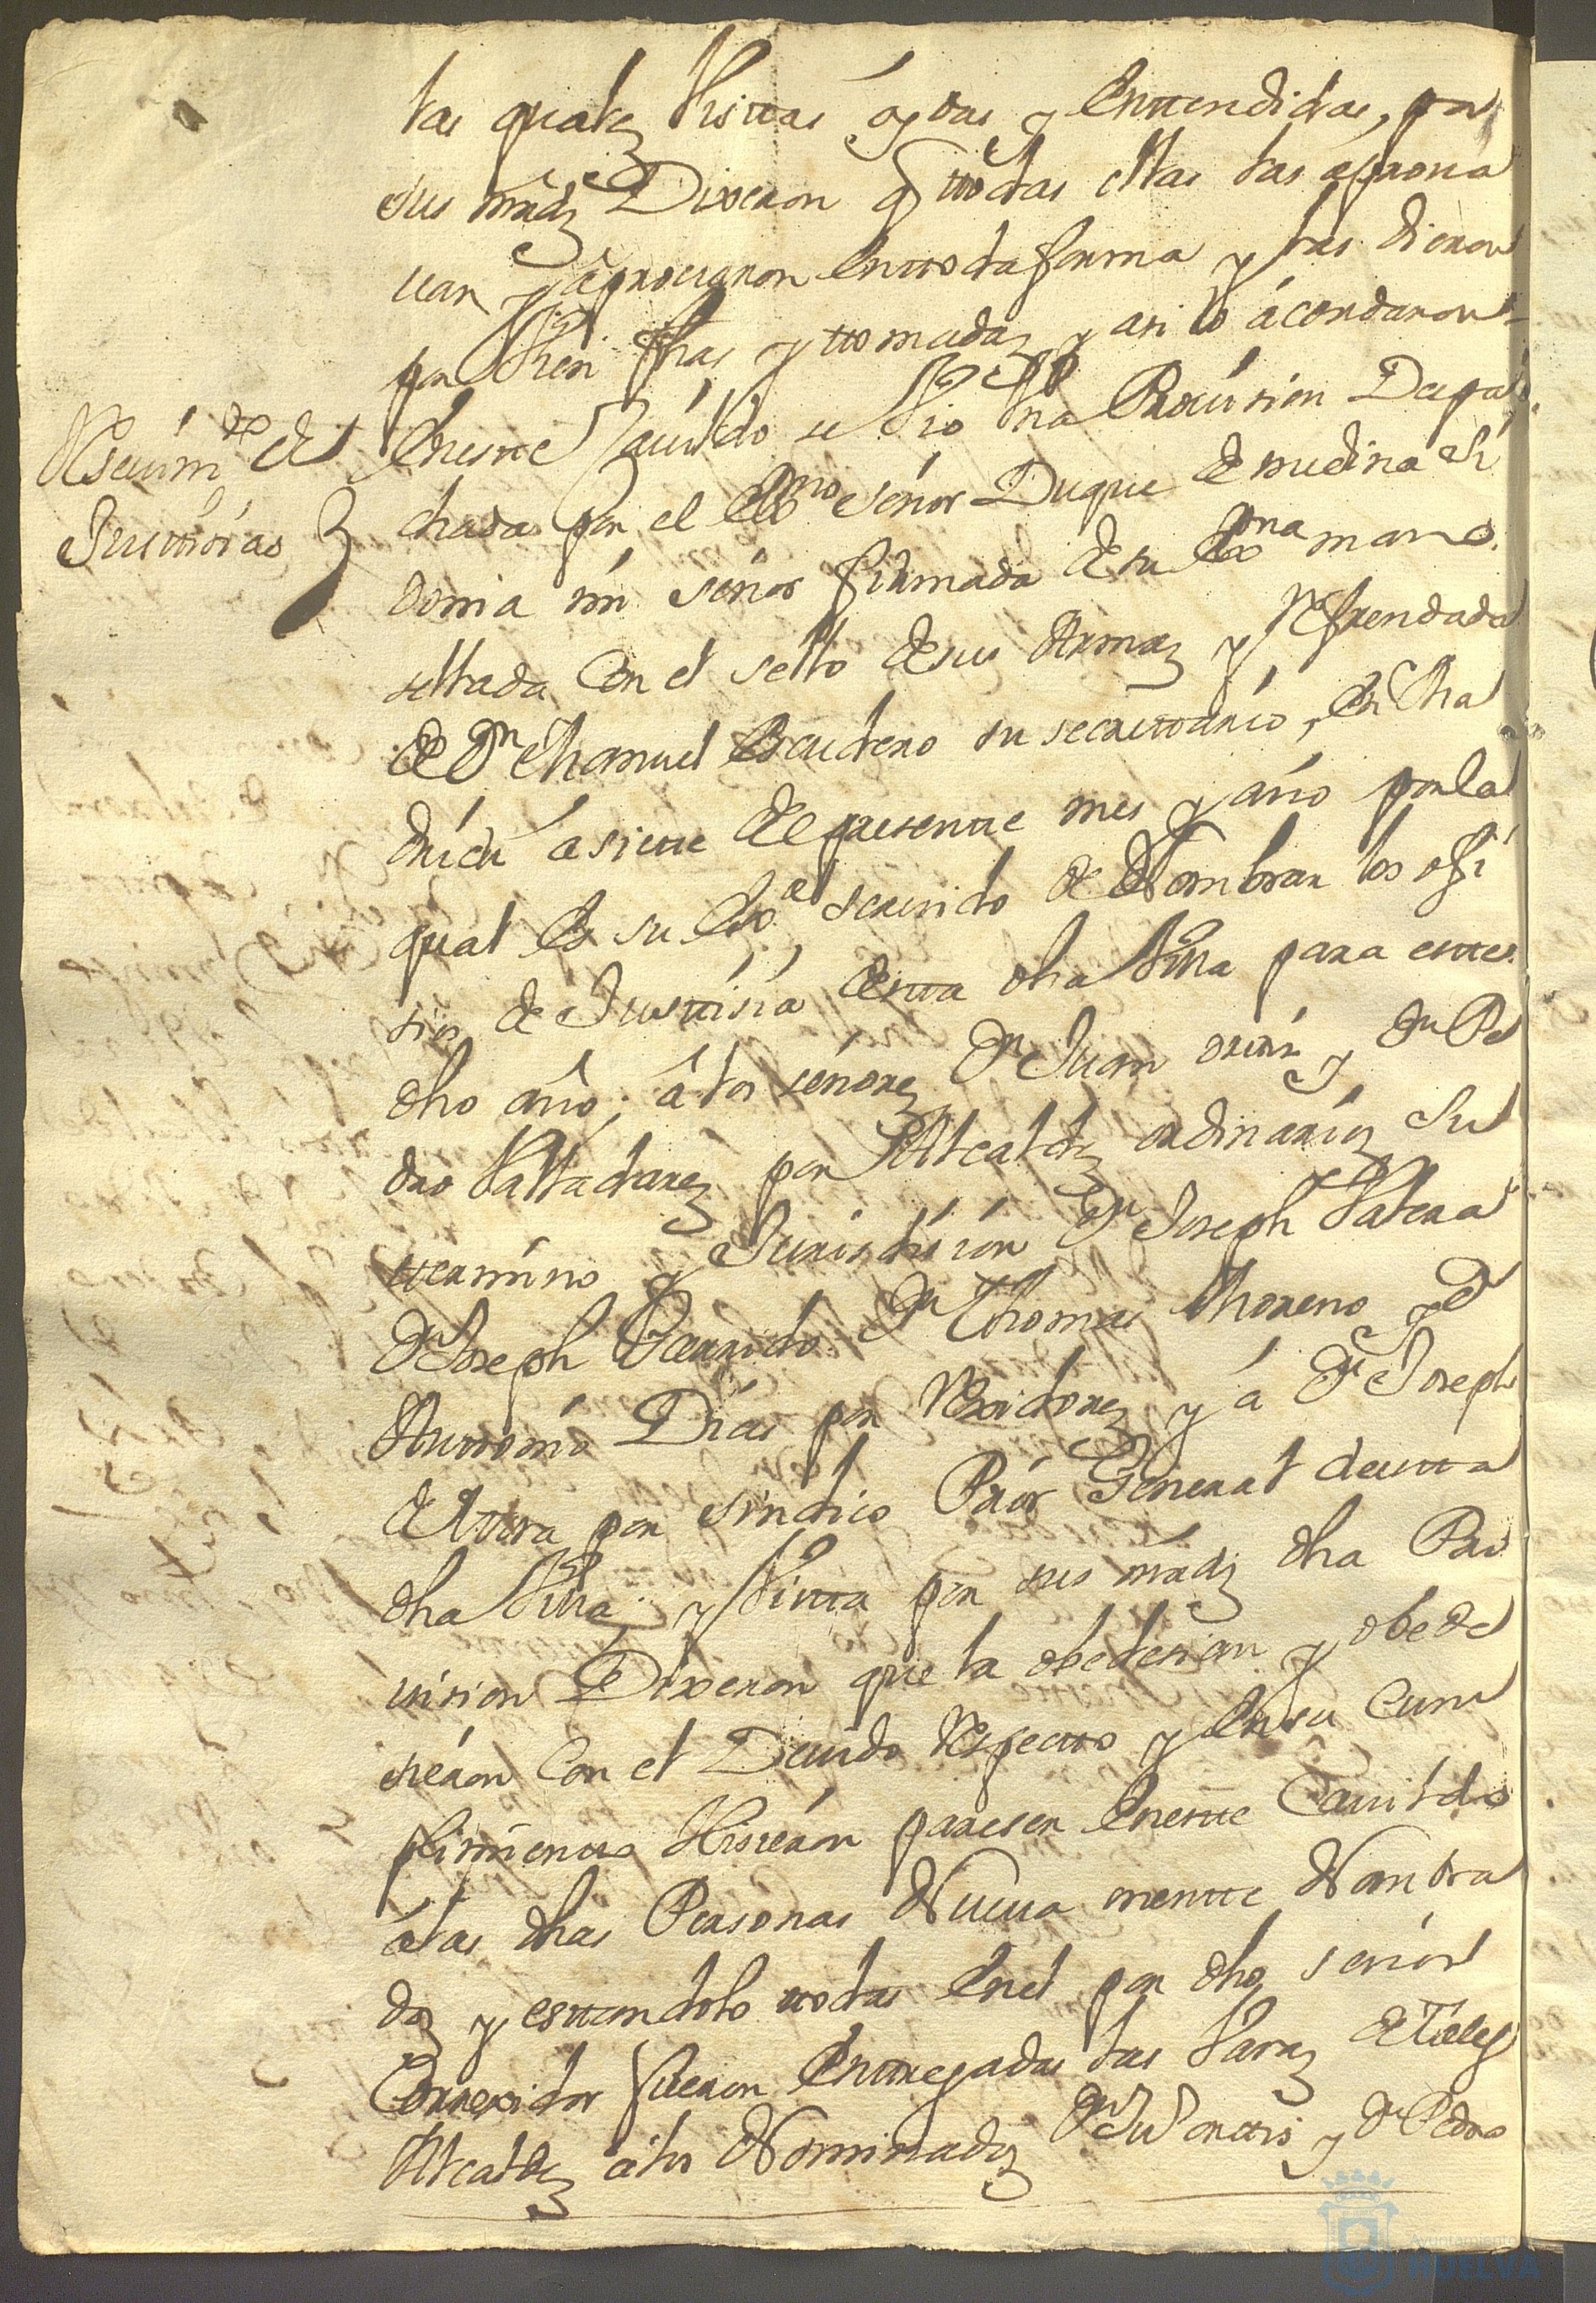 las quales Vistas oydas y Entendidas, por
sus mrds Dixeron q todas ellas las aprova
van y aprovaron En toda forma y las dieron
por bien fhas y tomadas y asi lo acordaron
Resevim.to de
Justisias
En este Cavildo se Vio Una Provision Despa
chada por el Exmo señor Duque de medina Si
donia mi señor firmada de su Exma mano
sellada Con el sello de sus Armas y Refrendada
de Dn Manuel Escudero su secretario, En Ma
drid a siete del presente mes y año por la
qual Es su Exa servido de Nombrar los ofi
sios de Justisia desta dha Villa para este
dho año; a los señores Dn Juan y Dn Pe
dro Valladares por Alcaldes ordinarios su
termino y Jurisdision Dn Joseph Valera
Dn Joseph Garrido Dn Thomas Moreno y Dn
Antonio Dias por Rexidores y a Dn Joseph
de Vora por sindico Pror General desta
dha Villa; y Vista por sus mrds dha Pro
vision Dixeron que la obedesian y obede
sieron Con el Devido Respecto y En su Cum
plimiento Hisieron pareser En este Cavildo
a las dhas Personas Nueva mente Nombra
das y estandolo todas En el por dho señor
Correxidor fueron Entregadas las Varas de Tales
Alcaldes a los Nominados Dn Ju y Dn Pedro
Ayuntamiento
HUELVA